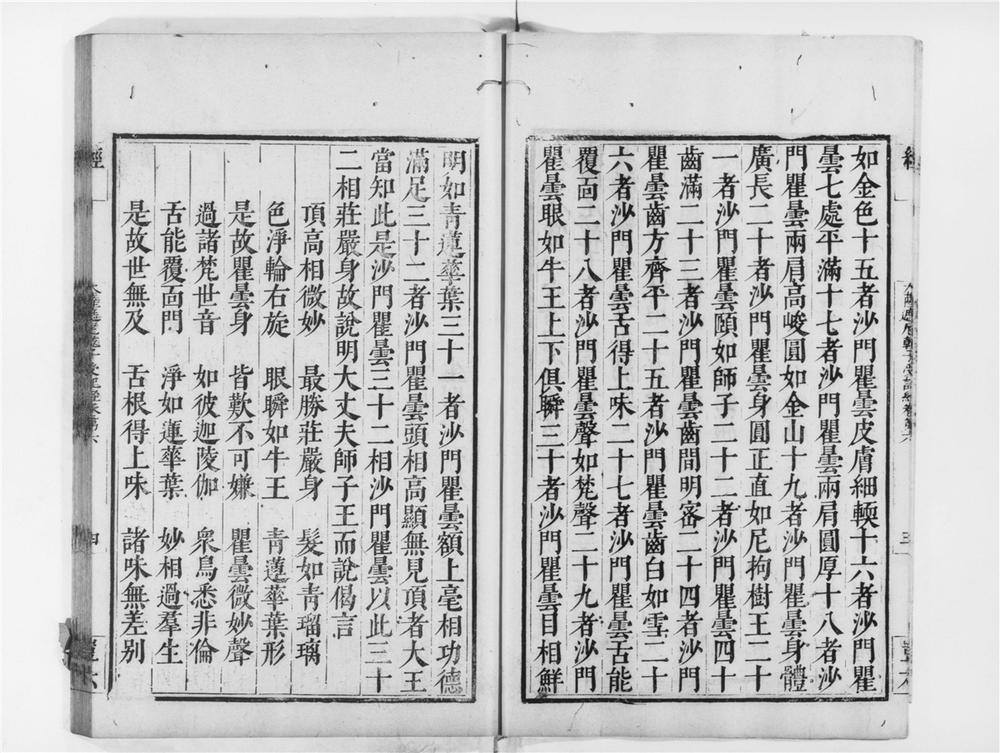 如金色十五者沙門瞿曇皮膚細輭十六者沙門瞿
曇七處平滿十七者沙門瞿曇兩肩圓厚十八者沙
門瞿曇兩肩高峻圓如金山十九者沙門瞿曇身體
廣長二十者沙門瞿曇身圓正直如尼拘樹王二十
一者沙門瞿曇頤如師子二十二者沙門瞿曇四十
齒滿二十三者沙門瞿曇齒間明密二十四者沙門
瞿曇齒方齊平二十五者沙門瞿曇齒白如雪二十
六者沙門瞿曇舌得上味二十七者沙門瞿曇舌能
覆面二十八者沙門瞿曇聲如梵聲二十九者沙門
瞿曇眼如牛王上下俱瞬三十者沙門瞿曇目相鮮
明如青蓮華葉三十一者沙門瞿曇額上毫相功德
滿足三十二者沙門瞿曇頭相高顯無見頂者大王
當知此是沙門瞿曇三十二相沙門瞿曇以此三十
二相莊嚴身故說明大丈夫師子王而說偈言
頂高相微妙 最勝莊嚴身 髮如青瑠璃
色淨輪右旋 眼瞬如牛王 青蓮華葉形
是故瞿曇身 皆歎不可嫌 瞿曇微妙聲
過諸梵世音 如彼迦陵伽 衆鳥悉非倫
舌能覆面門 淨如蓮華葉 妙相過羣生
是故世無及 舌根得上味 諸味無差别
經